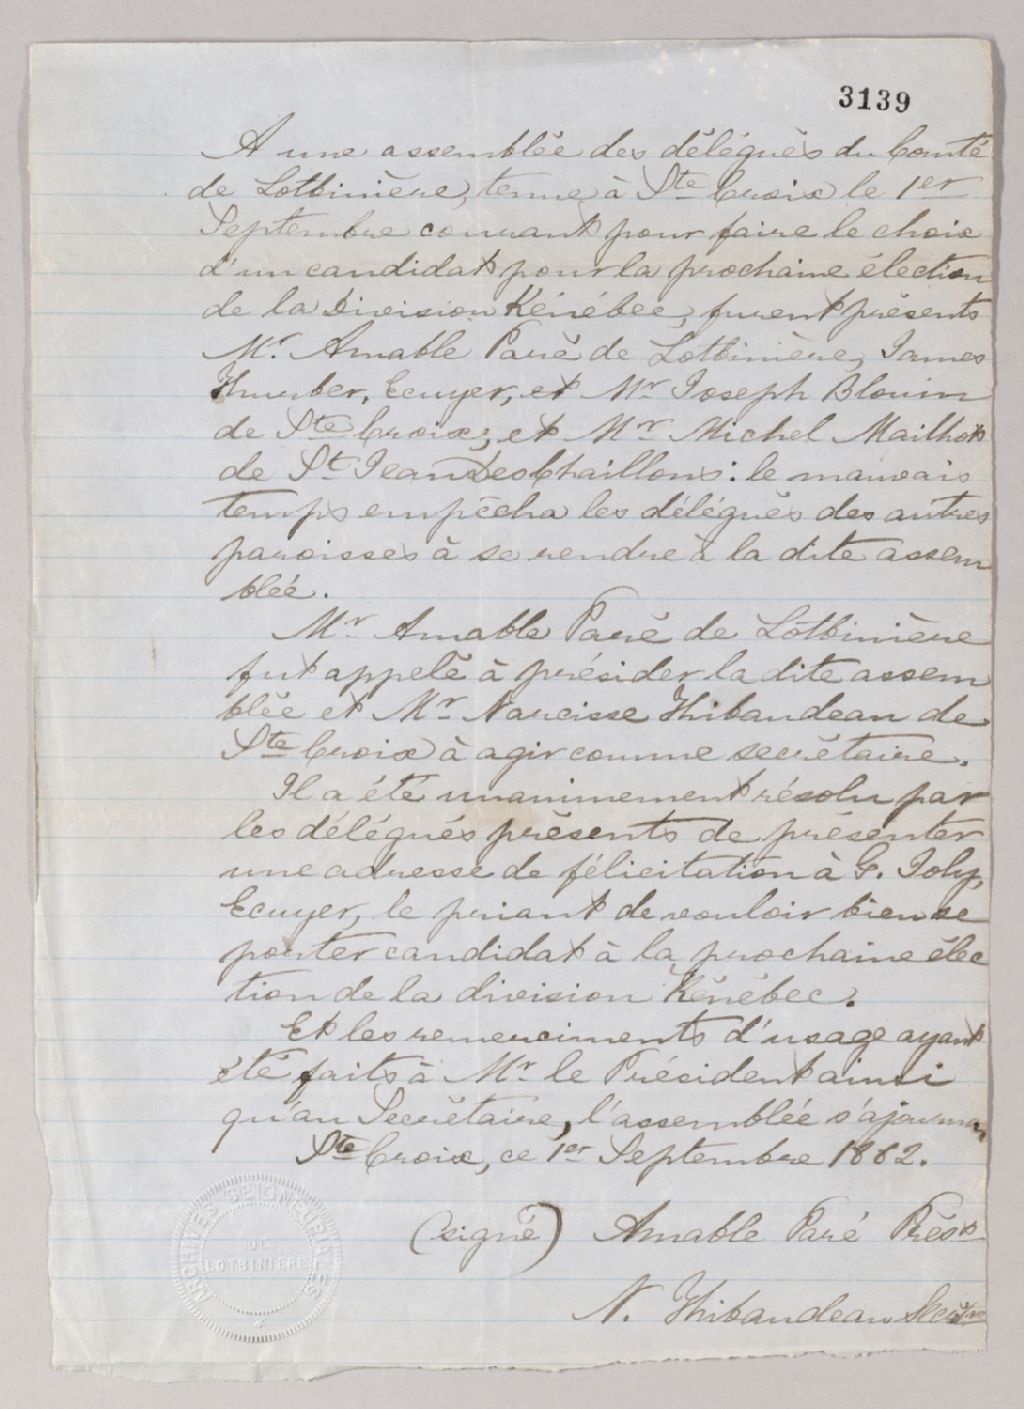 3139
A une assemblée des délégués du Comté
de Lotbinière, tenue à Ste Croix le 1er
Septembre courant pour faire le choix
d'un candidat pour la prochaine élection
de la Division Kénébec, furent présents
Mr. Amable Paré de Lotbinière, James
Thurber, Ecuyer, et Mr Joseph Blouin
de Ste Croix; et Mr Michel Mailhot
de St Jean Deschaillons: le mauvais
temps empêcha les délégués des autres
paroisses à se rendre à la dite assem
blée.
Mr Amable Paré de Lotbinière
fut appelé à présider la dite assem
blée et Mr Narcisse Thibaudeau de
Ste Croix à agir comme secrétaire.
Il a été unanimement résolu par
les délégués présents de présenter
une adresse de félicitation à G. Joly,
Ecuyer, le priant de vouloir bien se
porter candidat à la prochaine élec
tion de la division Kénébec.
Et les remerciments d'usage ayant
été faits à Mr. le Président ainsi
qu'au Secrétaire, l'assemblée s'ajourna
Ste Croix, ce 1er Septembre 1862.
(signé) Amable Paré Prést
N. Thibaudeau Secrétre
ARCHIVES SEIGNEURIALES
DE
LOTBINIÈRE